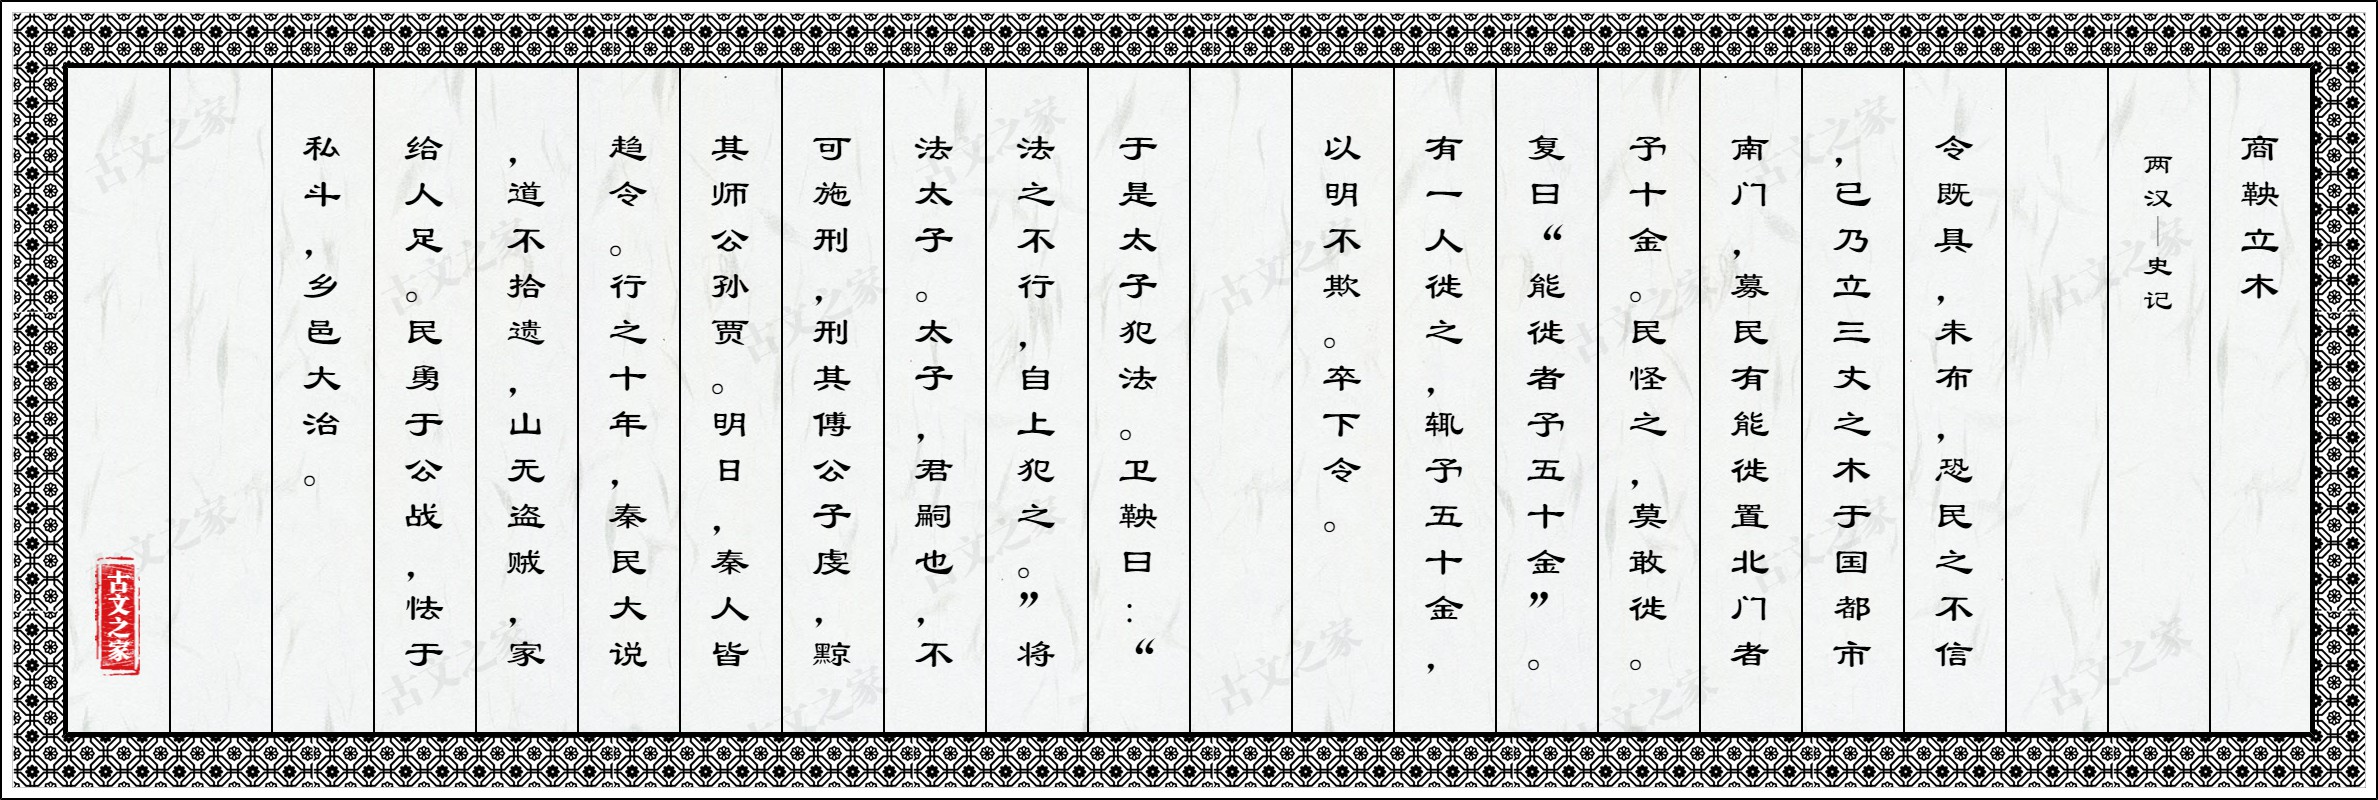 商鞅立木
两汉—史记
令既具,未布,恐民之不信
,已乃立三丈之木于国都市
南门,募民有能徙置北门者
予十金。民怪之,莫敢徙。
复曰“能徙者予五十金”。
有一人徙之,辄予五十金,
以明不欺。卒下令。
于是太子犯法。卫鞅曰:“
法之不行,自上犯之。”将
法太子。太子,君嗣也,不
可施刑,刑其傅公子虔,黥
其师公孙贾。明日,秦人皆
趋令。行之十年,秦民大说
,道不拾遗,山无盗贼,家
给人足。民勇于公战,怯于
私斗,乡邑大治。
古文之家